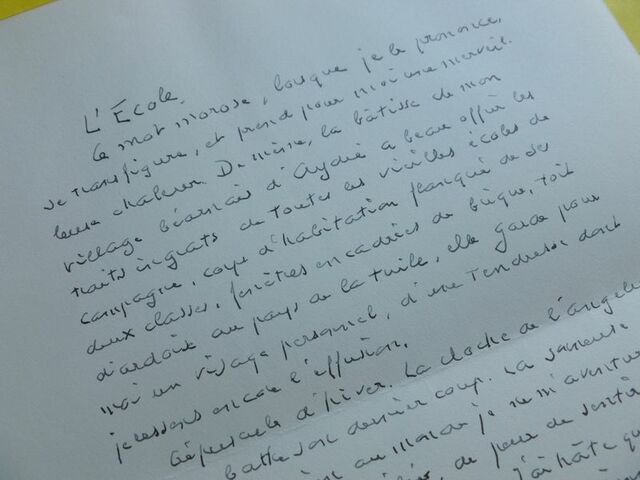 L'École.
Ce mot morose, lorsque je le prononce,
se transfigure, et prend pour moi une merveil-
leuse chaleur. De même, la bâtisse de mon
village béarnais d'Aydie a beau offrir les
traits ingrats de toutes les vieilles écoles de
campagne, corps d'habitation flanqué de ses
deux classes, fenêtres encadrées de brique, toit
d'ardoise au pays de la tuile, elle garde pour
moi un visage personnel, d'une tendresse dont
je ressens encore l'effusion.
Crépuscule d'hiver. La cloche de l'angélu
battu son dernier coup. La sonneuse
au monde je ne m'aventur
de peur de sentir
J'ai hâte qu